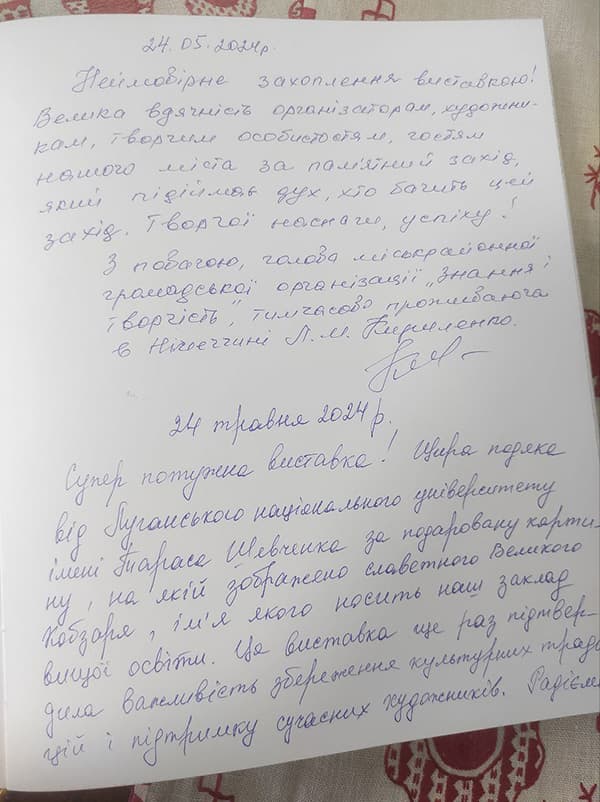 24.05.2024р.
Неймовірне захоплення виставкою!
Велика вдячність організаторам, художни-
кам, творчим особистостям, гостям
нашого міста за пам'ятний захід,
який підіймав дух, хто бачить цей
захід. Творчої наснаги, успіху!
З повагою, голова міськрайонної
громадської організації „Знання і
творчість", тимчасово проживаюча
в Німеччині Л.М. Кириленко.
24 травня 2024 р.
Супер потужна виставка! Щира подяка
від Луганського національного університету
імені Тараса Шевченка за подаровану карти-
ну, на якій зображено славетного Великого
Кобзаря, ім'я якого носить наш заклад
вищої освіти. Ця виставка ще раз підтвер-
дила важливість збереження культурних тради-
цій і підтримку сучасних художників. Радієм